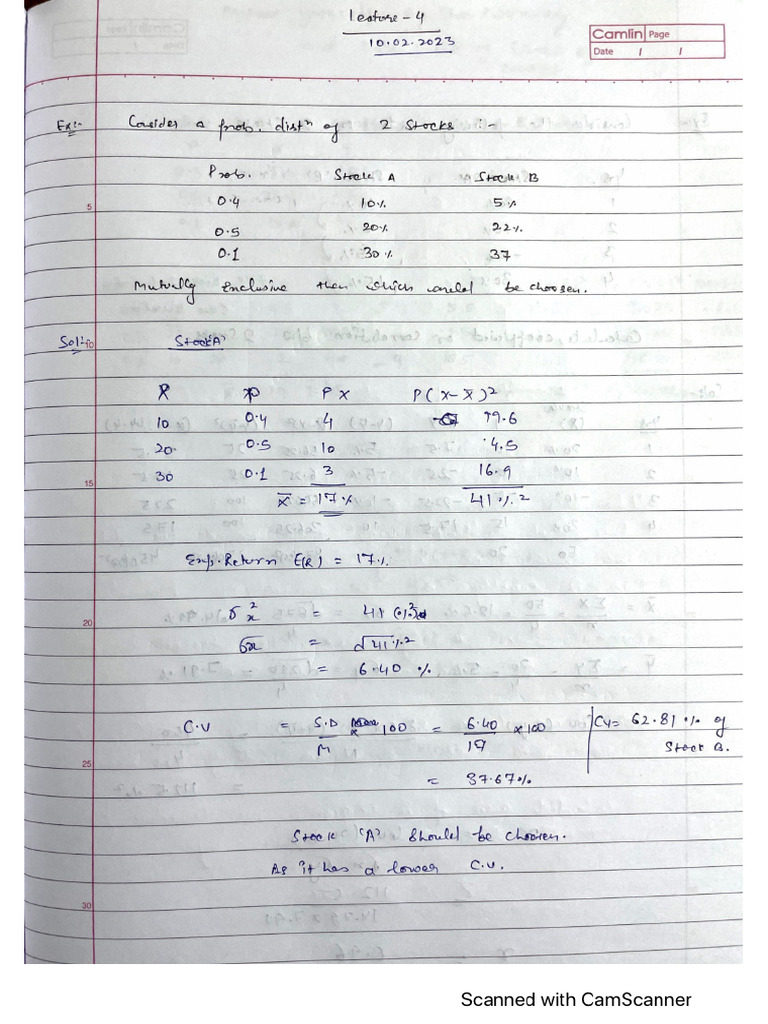 Lecture - 4
10.02.2023
Camlin Page
Date / /
Ex:- Consider a prob. distn of 2 Stocks :-
Prob. Stock A Stock B
5
0.4 10% 5%
0.5 20% 22%
0.1 30% 37
Mutually Exclusive then which would be choosen.
Soln 10 Stock 'A'
X P PX P(X-X̄)²
10 0.4 4 19.6
20 0.5 10 4.5
30 0.1 3 16.9
15
X̄ = 17% 41%²
Exp. Return E(R) = 17%
σx² = 41 (%)²
20
σx = √41%²
= 6.40 %
C.V = S.D / M x 100 = 6.40 / 17 x 100 CV= 62.81 % of Stock B.
25
= 37.67%
Stock 'A' Should be choosen.
As it has a lower C.V.
30
Scanned with CamScanner